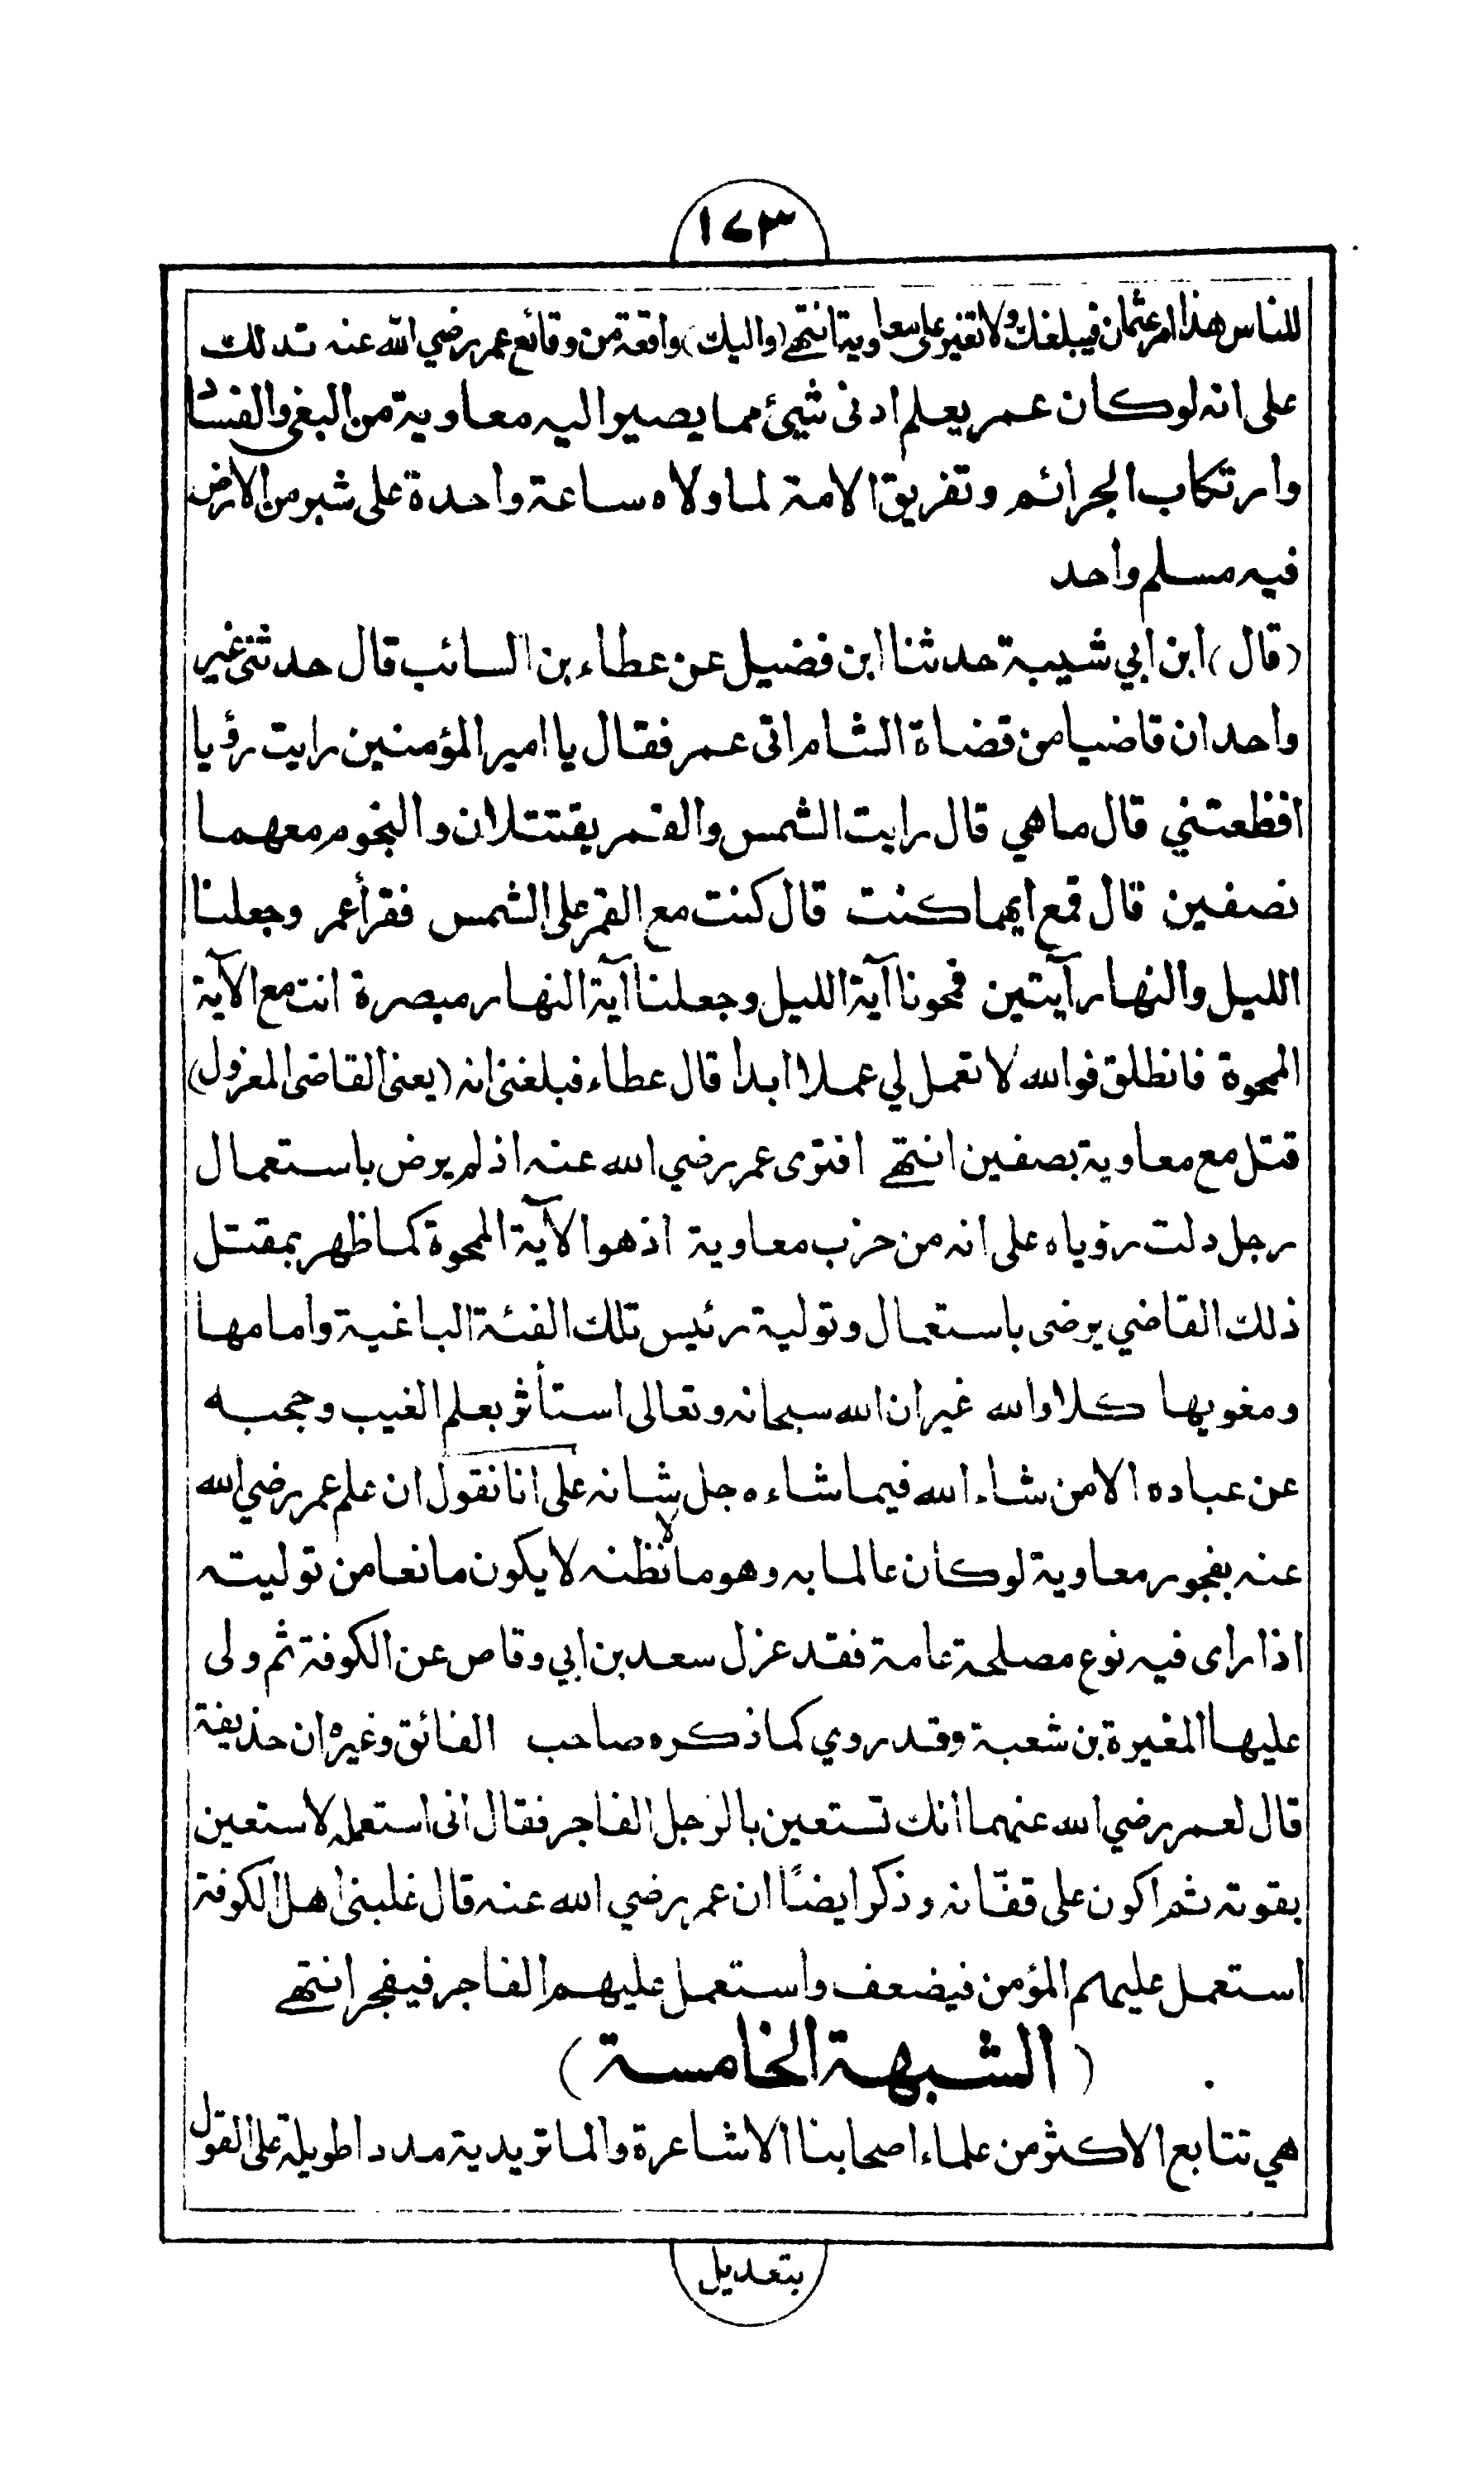 ١٤٣
للناس هذا امر عثمان فيبلغك ولا تغير على معاوية انتهى (واليك) واقعة من وقائع عمر رضي الله عنه تدلك
على انه لو كان عمر يعلم ادنى شيئ مما يصير اليه معاوية من البغي والفساد
وارتكاب الجرائم وتفريق الامة لما ولاه ساعة واحدة على شبر من الارض
فيه مسلم واحد
(قال) ابن ابي شيبة حدثنا ابن فضيل عن عطاء بن السائب قال حدثني غير
واحد ان قاضيا من قضاة الشام اتى عمر فقال يا امير المؤمنين رايت رؤيا
افظعتني قال ما هي قال رايت الشمس والقمر يقتتلان والنجوم معهما
نصفين قال فمع ايهما كنت قال كنت مع القمر على الشمس فقرأ عمر وجعلنا
الليل والنهار آيتين فمحونا آية الليل وجعلنا آية النهار مبصرة انت مع الآية
الممحوة فانطلق فوالله لا تعمل لي عملا ابدا قال عطاء فبلغني انه (يعني القاضي المعزول)
قتل مع معاوية بصفين انتهى افترى عمر رضي الله عنه اذ لم يرض باستعمال
رجل دلت رؤياه على انه من حزب معاوية اذ هو الآية الممحوة كما ظهر بمقتل
ذلك القاضي يرضى باستعمال وتولية رئيس تلك الفئة الباغية وامامها
ومغويها كلا والله غير ان الله سبحانه وتعالى استأثر بعلم الغيب وحجبه
عن عباده الا من شاء الله فيما شاءه جل شانه على انا نقول ان علم عمر رضي الله
عنه بفجور معاوية لو كان عالما به وهو ما لا نظنه لا يكون مانعا من توليته
اذا راى فيه نوع مصلحة عامة فقد عزل سعد بن ابي وقاص عن الكوفة ثم ولى
عليها المغيرة بن شعبة وقد روي كما ذكره صاحب الفائق وغيره ان حذيفة
قال لعمر رضي الله عنهما انك تستعين بالرجل الفاجر فقال اني استعمله لاستعين
بقوته ثم اكون على قفّانه وذكر ايضًا ان عمر رضي الله عنه قال غلبني اهل الكوفة
استعمل عليهم المؤمن فيضعف واستعمل عليهم الفاجر فيفجر انتهى
(الشبهة الخامسة)
هي تتابع الاكثر من علماء اصحابنا الاشاعرة والماتريدية مددا طويلة على القول
بتعديل